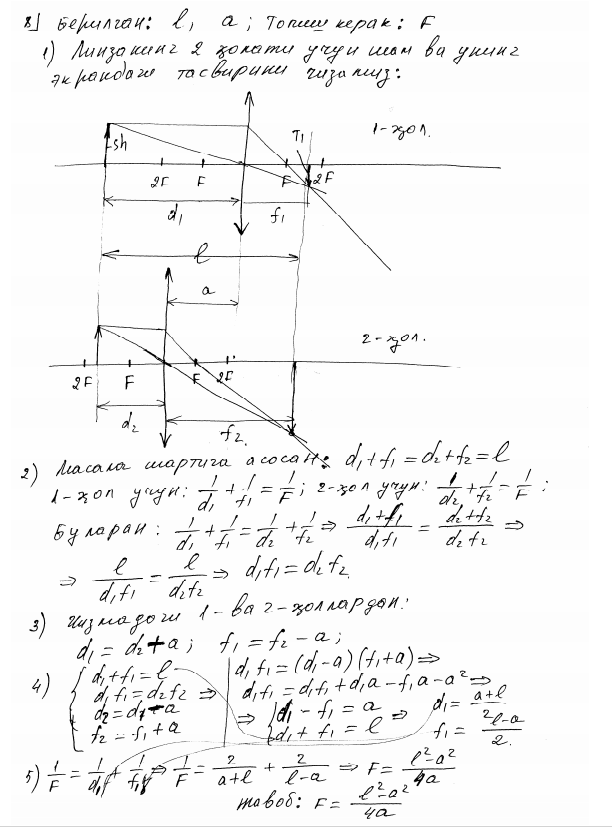 8) Берилган: l, a; Топиш керак: F
1) Линзанинг 2 ҳолати учун шам ва унинг
экрандаги тасвирини чизамиз:
1-ҳол.
Sh
T1
2F F F 2F
d₁ f₁
l
a
2-ҳол.
2F F F 2F
d₂ f₂
2) Масала шартига асосан: d₁+f₁=d₂+f₂=l
1-ҳол учун: 1/d₁ + 1/f₁ = 1/F; 2-ҳол учун: 1/d₂ + 1/f₂ = 1/F;
Булардан: 1/d₁ + 1/f₁ = 1/d₂ + 1/f₂ ⇒ (d₁+f₁)/(d₁f₁) = (d₂+f₂)/(d₂f₂) ⇒
⇒ l/(d₁f₁) = l/(d₂f₂) ⇒ d₁f₁=d₂f₂
3) Чизмадаги 1-ва 2-ҳоллардан:
d₁=d₂+a; f₁=f₂-a;
4) { d₁+f₁=l
d₁f₁=d₂f₂ ⇒
d₂=d₁-a
f₂=f₁+a
d₁f₁=(d₁-a)(f₁+a)⇒
d₁f₁=d₁f₁+d₁a-f₁a-a²⇒
⇒ { d₁-f₁=a
d₁+f₁=l ⇒
d₁=(a+l)/2
f₁=(l-a)/2.
5) 1/F = 1/d₁ + 1/f₁ ⇒ 1/F = 2/(a+l) + 2/(l-a) ⇒ F = (l²-a²)/4a
жавоб: F = (l²-a²)/4a